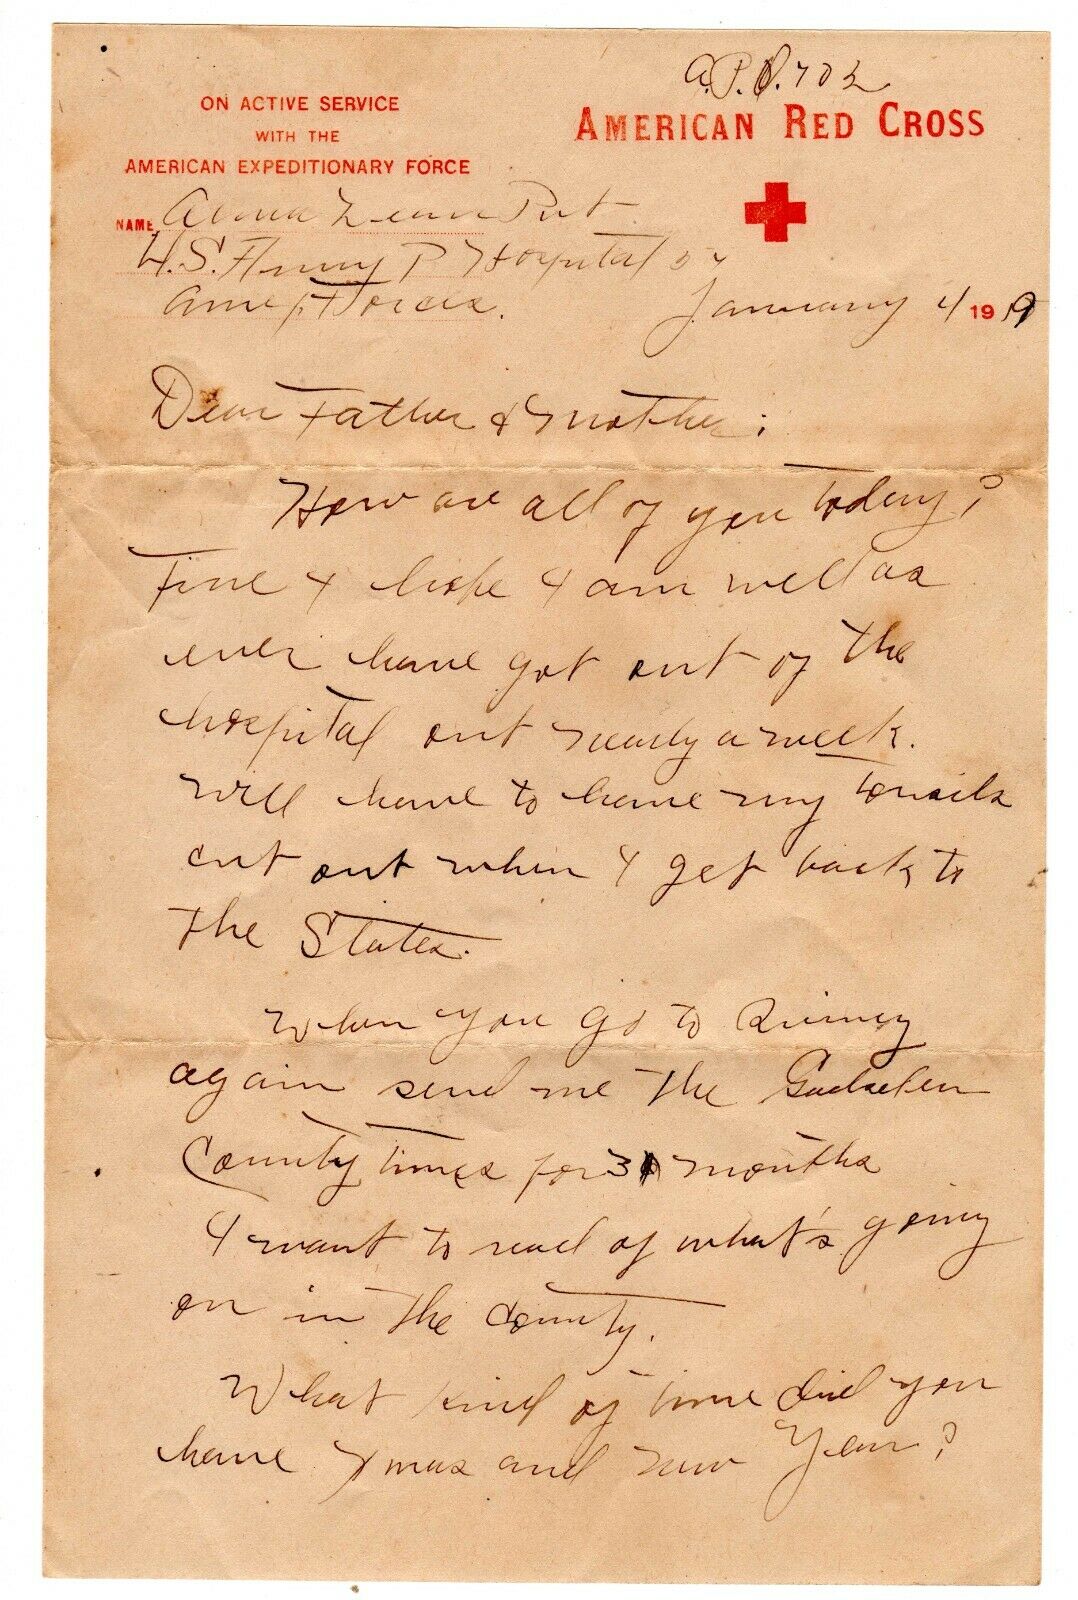 A.P.O. 702
ON ACTIVE SERVICE
WITH THE
AMERICAN EXPEDITIONARY FORCE
AMERICAN RED CROSS
NAME Pvt
U.S. Army P Hospital 57
Amer Forces.
January 4 1919
Dear Father & Mother:
How are all of you today?
Fine I hope I am well as
ever have got out of the
hospital out nearly a week.
Will have to have my tonsils
cut out when I get back to
the States.
When you go to Quincy
again send me the Gadsden
County times for 3 months
I want to read of what's going
on in the County.
What kind of time did you
have Xmas and New Year?